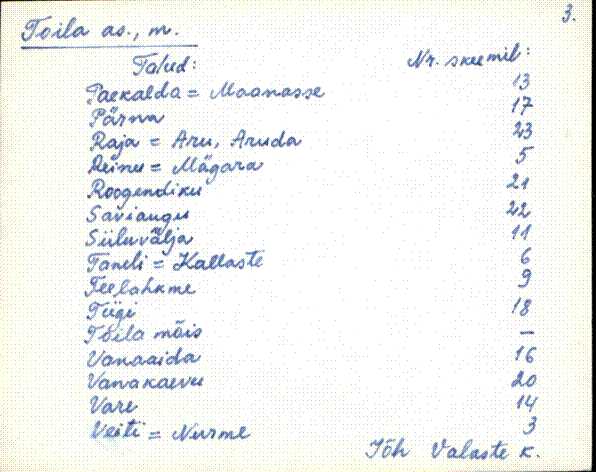 3.
Toila as., m.
Talud: Nr. skeemil:
Paekalda = Maanasse 13
Pärna 17
Raja = Aru, Aruda 23
Reinu = Mägara 5
Roogendiku 21
Saviaugu 22
Siiluvälja 11
Taneli = Kallaste 6
Teelahkme 9
Tiigi 18
Toila mõis —
Vanaaida 16
Vanakaevu 20
Vare 14
Veiti = Nurme 3
Jõh Valaste k.